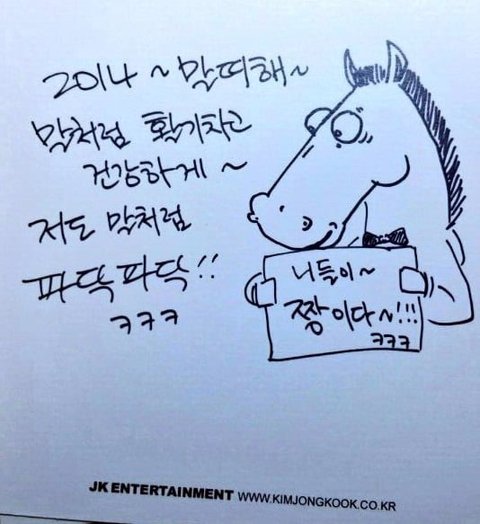 2014 ~ 말띠해~
말처럼 활기차고
건강하게 ~
저도 말처럼
파닥파닥!!
ㅋㅋㅋ
니들이~
짱이다~!!!
ㅋㅋㅋ
JK ENTERTAINMENT WWW.KIMJONGKOOK.CO.KR